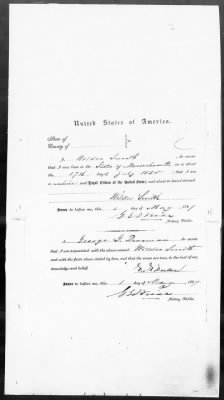 United States of America.
State of
County of
I, Wilder Smith do swear
that I was born in the State of Massachusetts on or about
the 17th day of July 1835 that I am
a native and Loyal Citizen of the United States, and about to travel abroad.
Wilder Smith
Sworn to before me, this 1 day of May 1867
Notary Public.
I, George do swear
that I am acquainted with the above-named Wilder Smith
and with the facts above stated by him, and that the same are true, to the best of my
knowledge and belief.
Sworn to before me, this 1 day of May 1867
Notary Public.